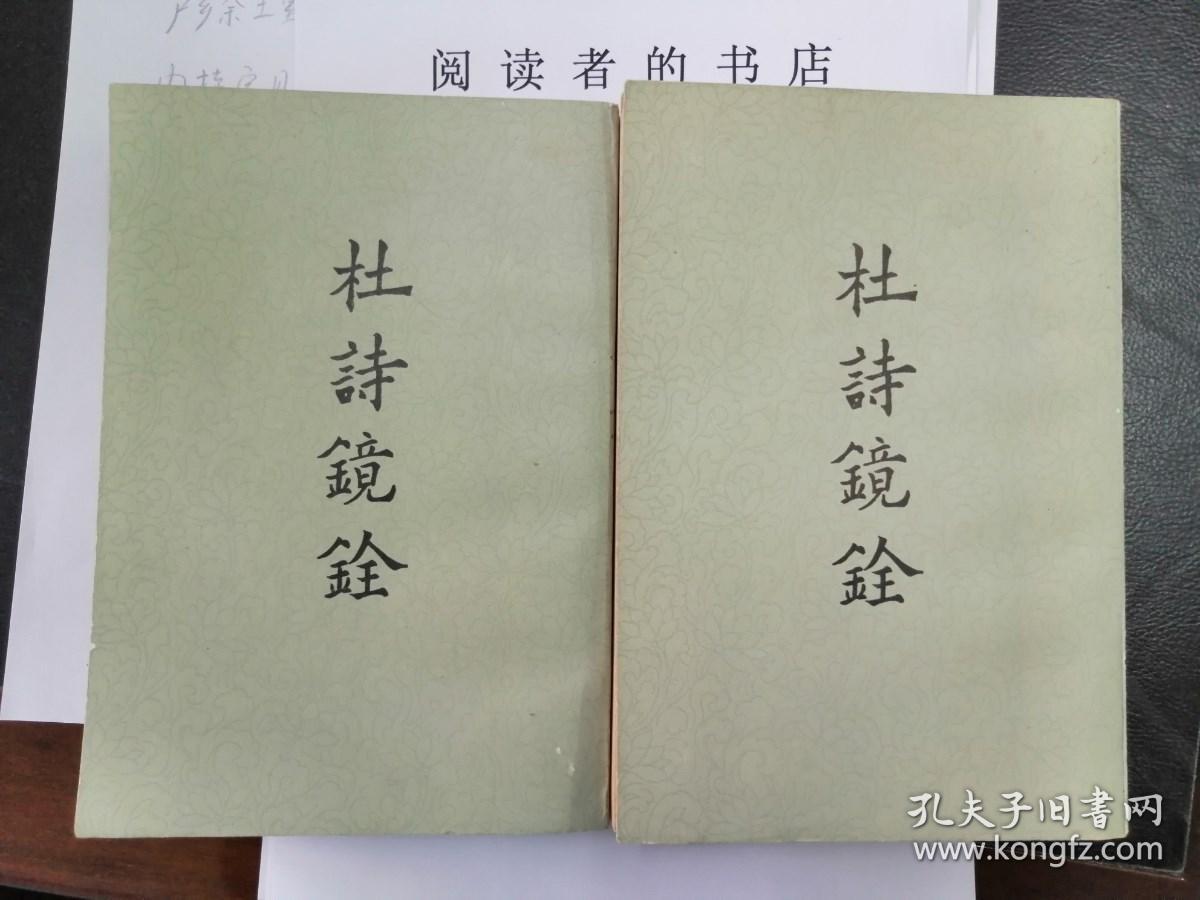 阅读者的书店
杜詩鏡銓
杜詩鏡銓
孔夫子旧書网
www.kongfz.com